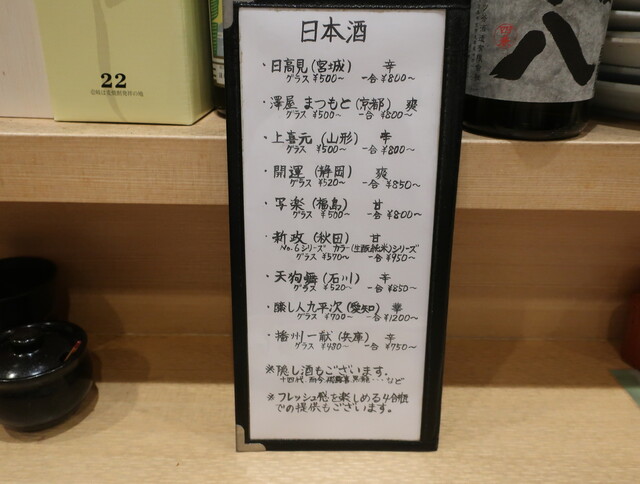 日本酒
・日高見(宮城) 辛
グラス ¥500〜 一合 ¥800〜
・澤屋 まつもと(京都) 爽
グラス ¥500〜 一合 ¥800〜
・上喜元(山形) 辛
グラス ¥500〜 一合 ¥800〜
・開運(静岡) 爽
グラス ¥520〜 一合 ¥850〜
・写楽(福島) 甘
グラス ¥500〜 一合 ¥800〜
・新政(秋田) 甘
No.6シリーズ カラー(生酛純米)シリーズ
グラス ¥570〜 一合 ¥950〜
・天狗舞(石川) 辛
グラス ¥520〜 一合 ¥850〜
・醸し人九平次(愛知) 華
グラス ¥700〜 一合 ¥1200〜
・播州一献(兵庫) 辛
グラス ¥480〜 一合 ¥750〜
※隠し酒もございます。
十四代 而今 飛露喜 黒龍…など
※フレッシュ感を楽しめる4合瓶
での提供もございます。
22
八